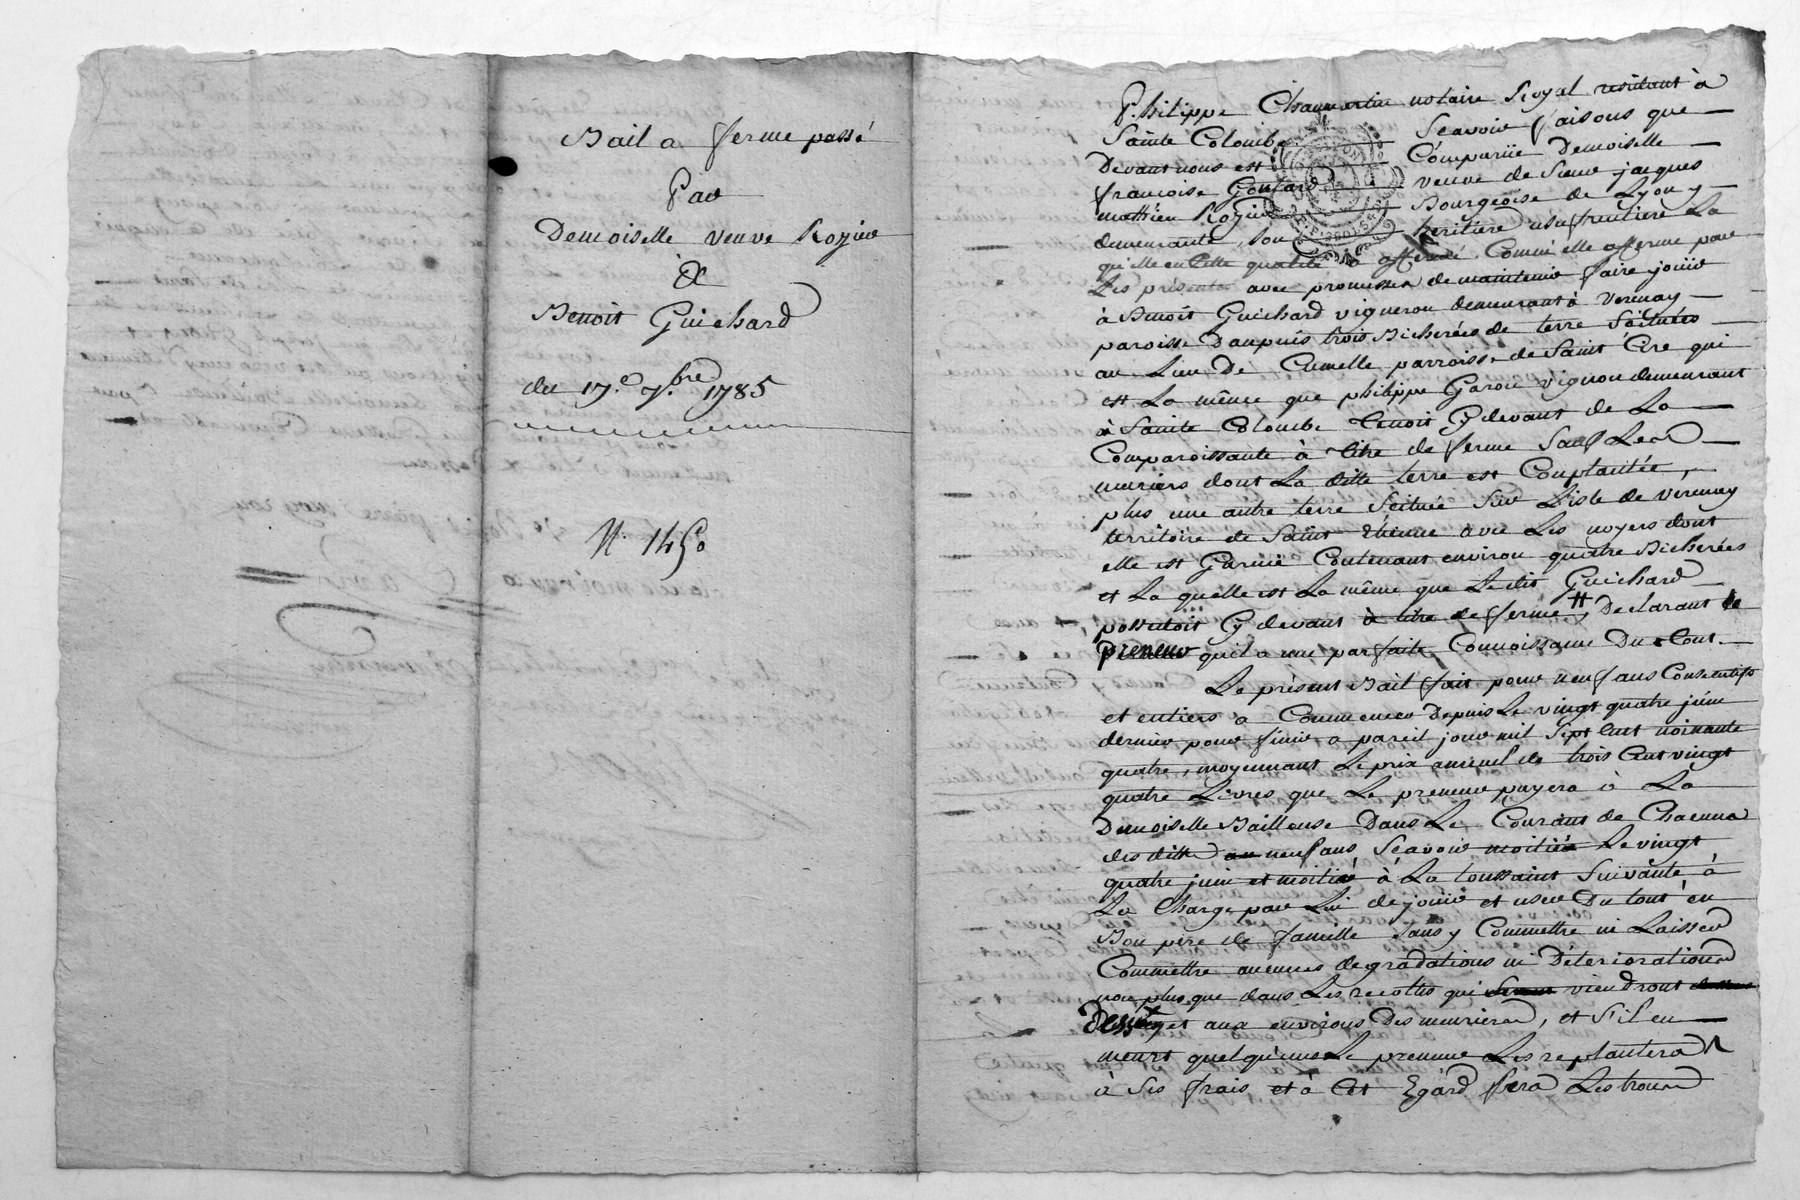 Bail a ferme passé
Par
Demoiselle veuve Rozier
A
Benoit Guichard
du 17.e 7.bre 1785
N. 1450
Philippe Chaumartin notaire Royal residant à
Sainte Colombe Sçavoir faisons que
Devant nous est Comparüe Demoiselle
françoise Gonfard veuve de Sieur jacques
mathieu Rozier Bourgeoise de Lyon y
demeurante, son heritière usufruitière La
qu'elle en Cette qualité a affermé Comme elle afferme par
Les présentes avec promesse de maintenir faire joüir
à Benoit Guichard vigneron demeurant à Verenay
paroisse Dampuis trois Bicherées de terre Scituées
au Lieu De Cumelle parroisse de Saint Cire qui
est La même que philippe Garon vigneron demeurant
à Sainte Colombe tenoit Cy devant de La
Comparoissante à titre de ferme Sauf Les
muriers dont La ditte terre est Complantée,
plus une autre terre Scituée Sur L'isle de Vérenay
territoire de Saint Etienne avec Les noyers dont
elle est Garnie Contenant environ quatre Bicherées
et La quelle est La même que Le dit Guichard
possedoit Cy devant à titre de ferme, Declarant le
preneur qu'il a une parfaite Connoissance Du tout.
Le présent Bail fait pour neuf ans Consecutifs
et entiers a Commencer Depuis Le vingt quatre juin
dernier pour finir a pareil jour mil Sept Cent noinante
quatre, moyennant Le prix annuel de trois Cent vingt
quatre Livres que Le preneur payera à La
Demoiselle Bailleuse Dans Le Courant de Chacune
des dittes neuf ans Sçavoir moitié Le vingt
quatre juin et moitié à La toussaint Suivante à
La Charge par Lui de joüir et user Du tout en
Bon père de famille Sans y Commettre ni Laisser
Commettre aucunes degradations ni Déteriorations
non plus que dans Les recoltes qui viendront
dessus et aux environs Des muriers, et S'il en
meurt quelqu'uns Le preneur Les replantera
à Ses frais et à Cet Egard fera Les trous